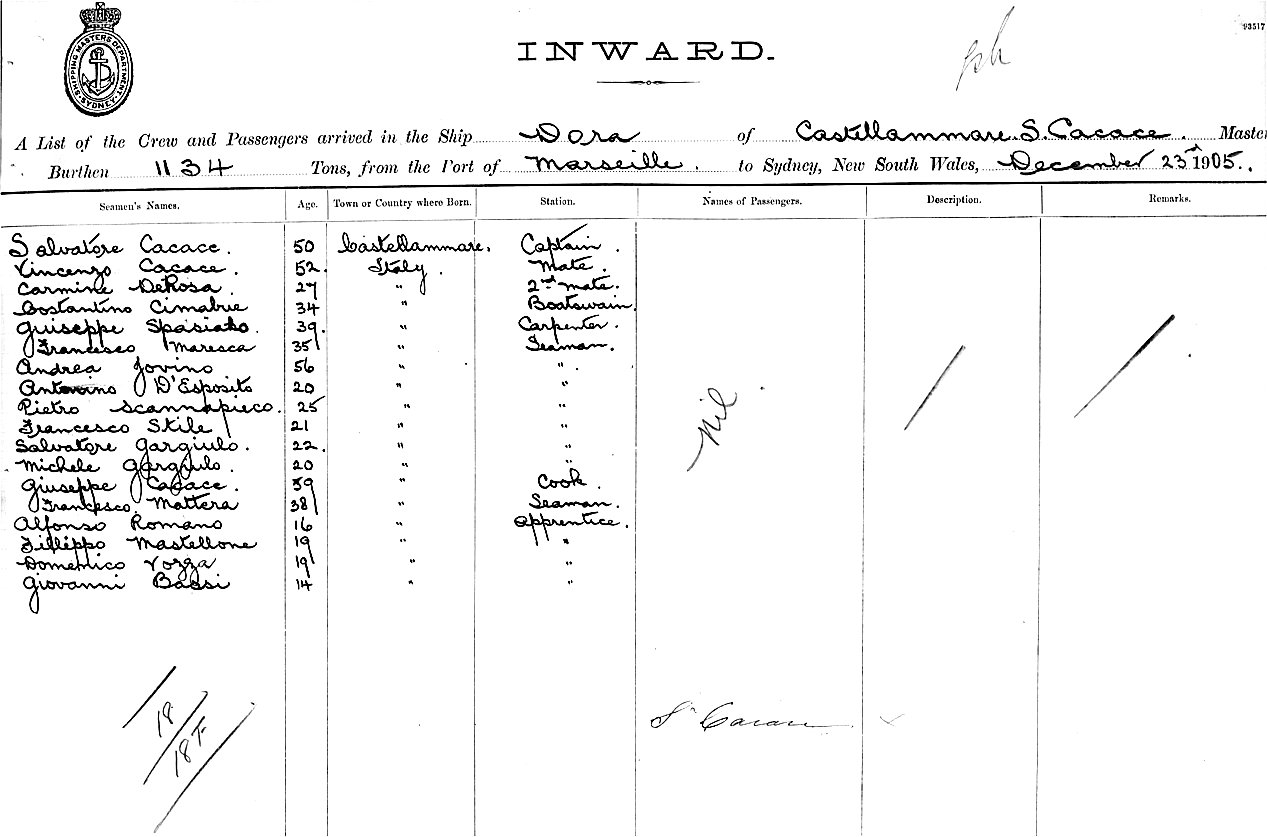 93517
INWARD.
SHIPPING MASTERS DEPARTMENT. SYDNEY
A List of the Crew and Passengers arrived in the Ship Dora of Castellammare. S. Cacace. Master
Burthen 1134 Tons, from the Port of Marseille. to Sydney, New South Wales, December 23rd 1905.
Seamen's Names. Age. Town or Country where Born. Station. Names of Passengers. Description. Remarks.
Salvatore Cacace. 50 Castellammare. Captain.
Vincenzo Cacace. 52. Italy. Mate.
Carmine DeRosa. 27 " 2nd mate.
Costantino Cimabrie 34 " Boatswain.
Guiseppe Spasiato. 39. " Carpenter.
Francesco Maresca 35 " Seaman.
Andrea Jovino 56 " ".
Antonino D'Esposito 20 " "
Pietro Scannapieco. 25 " "
Francesco Stile 21 " "
Salvatore Gargiulo. 22. " "
Michele Gargiulo. 20 " "
Giuseppe Cacace. 59 " Cook.
Francesco Mattera 38 " Seaman.
Alfonso Romano 16 " Apprentice.
Fillippo Mastellone 19 " "
Domenico Vozza 19 " "
Giovanni Bassi 14 " "
Nil.
18
18 F
S. Cacace